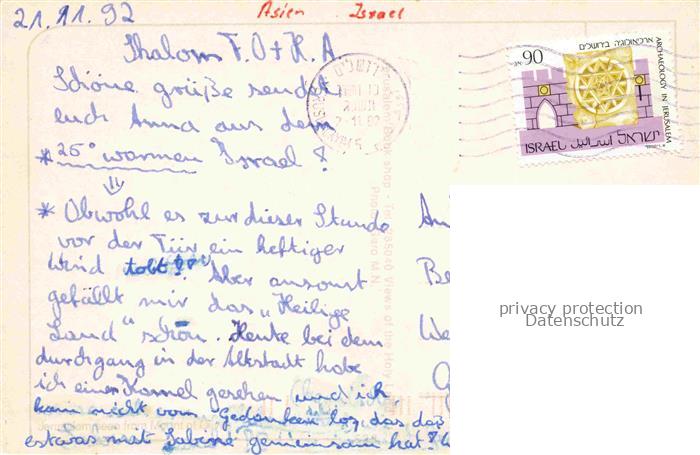 21.11.92
Asien Israel
Shalom T.O + K.A
Schöne grüße sendet
euch Anna aus dem
* 25° warmen Israel!
* Obwohl es zur dieser Stunde
vor der Tür ein heftiger
Wind tobt! Aber ansonst
gefällt mir das "Heilige
Land" schön. Heute bei dem
durchgang in der Altstadt habe
ich einen Kamel gesehen und ich
kann nicht vom Gedanken los, das das
estwas mit Sabine gemeinsam hat!
90
ARCHAEOLOGY IN JERUSALEM
ארכיאולוגיה בירושלים
ISRAEL اسرائيل ישראל
ירושלים
shop - Tel. 285040 Views of the Holy
An
Be
We
privacy protection
Datenschutz